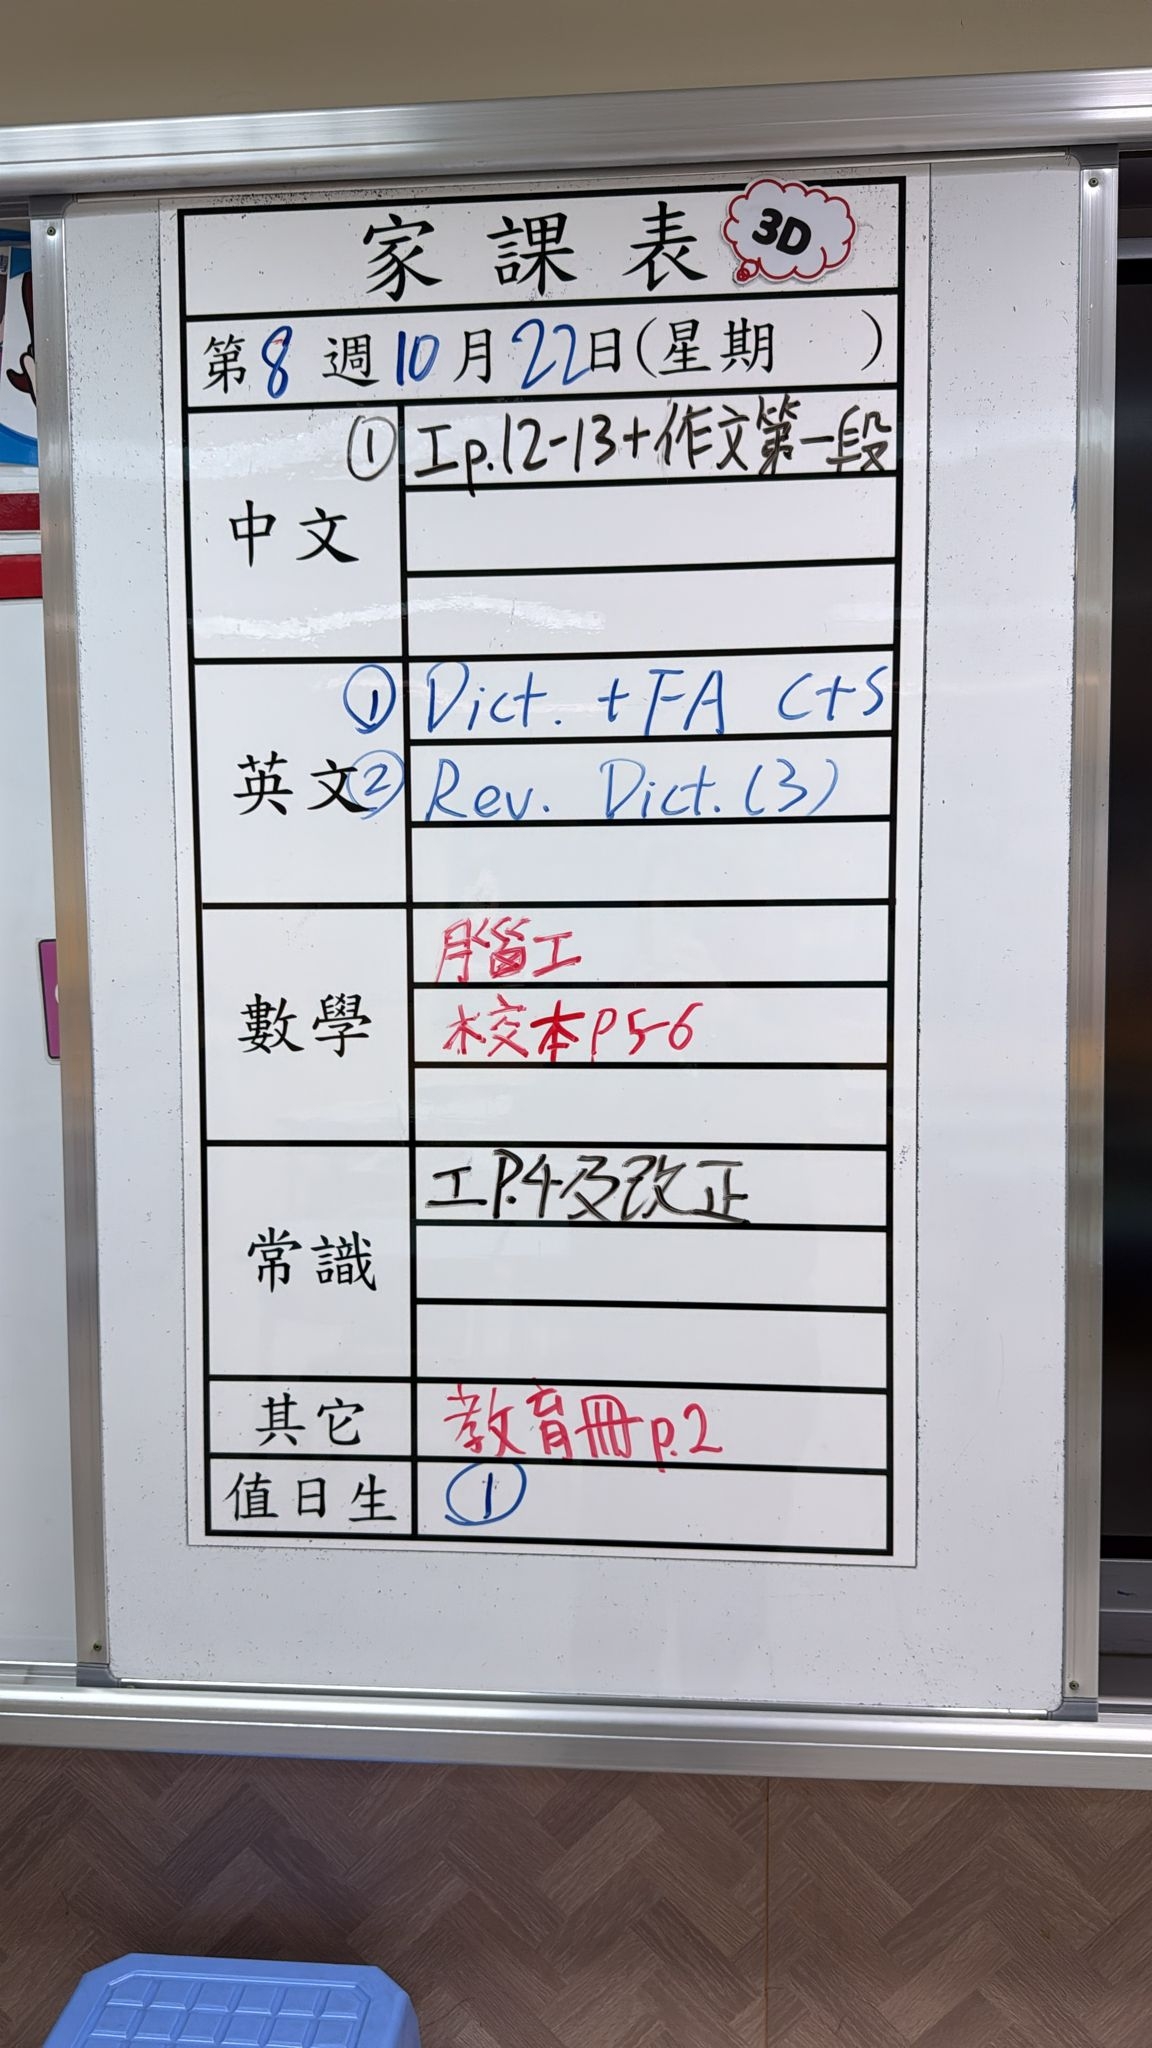 家課表 3D
第8週10月22日(星期 )
中文
① 工p.12-13+作文第一段
英文
① Dict. + FA C+S
② Rev. Dict.(3)
數學
腦工
校本P5-6
常識
工P.4及改正
其它 教育冊p.2
值日生 ①